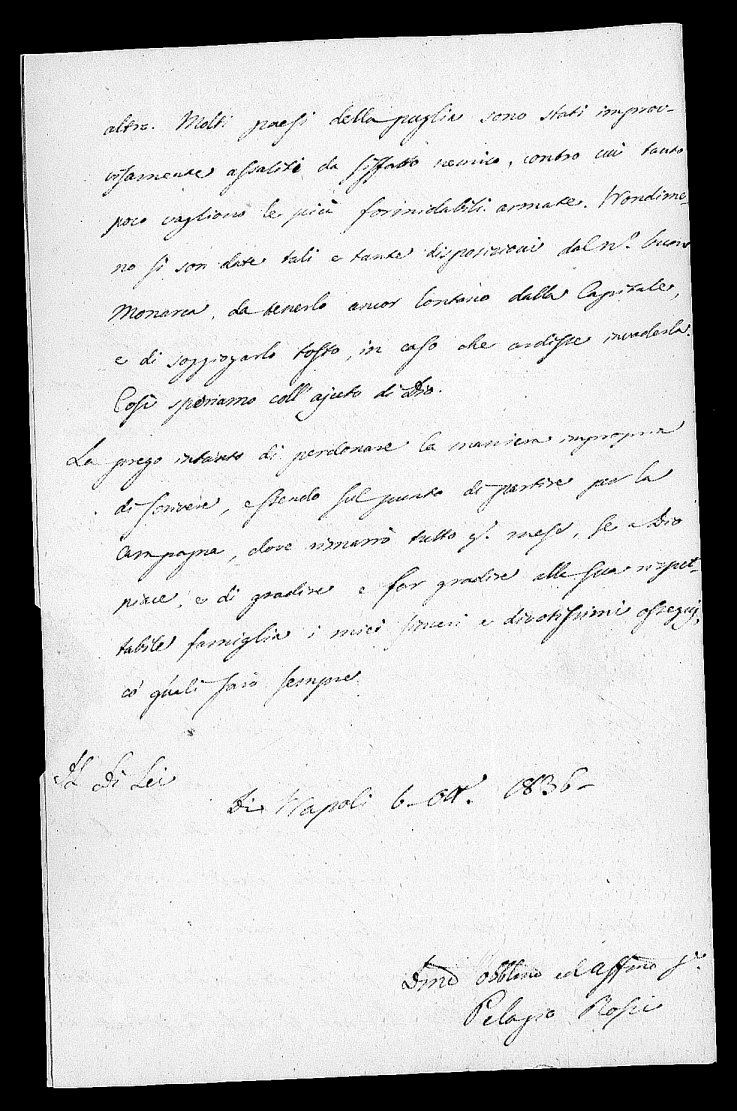 altro. Molti paesi della puglia sono stati improv-
visamente assaliti da siffatto nemico, contro cui tanto
poco vagliono le più formidabili armate. Nondime-
no si son date tali e tante disposizioni dal nº. buon
Monarca, da tenerlo ancor lontano dalla Capitale,
e di soggiogarlo tosto, in caso che ardisse invaderla.
Così speriamo coll'ajuto di Dio.
La prego intanto di perdonare la maniera impropria
di scrivere, essendo sul punto di partire per la
campagna, dove rimarrò tutto qº. mese, se a Dio
piace, e di gradire e far gradire alla sua rispet-
tabile famiglia i miei sinceri e divotissimi ossequj,
co' quali sarò sempre
Di Lei
Di Napoli 6. Ott. 1836-
Dmo Obblmo ed Affmo sº.
Pelagio Rossi